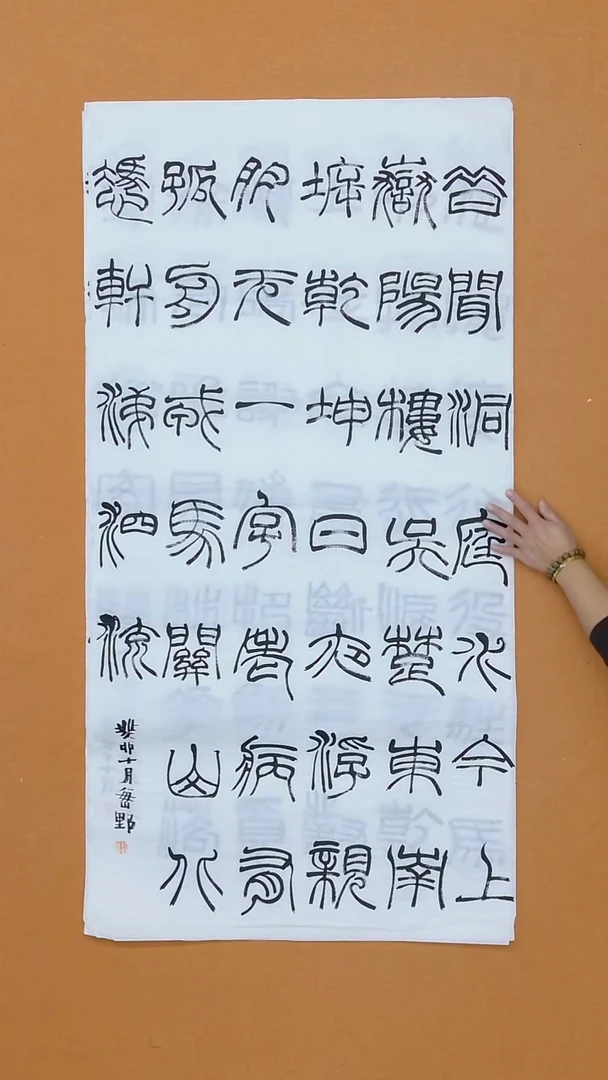 昔聞洞庭水今上
嶽陽樓吳楚東南
坼乾坤日夜浮親
朋无一字老病有
孤舟戎馬關山北
憑軒涕泗流
癸卯十月野